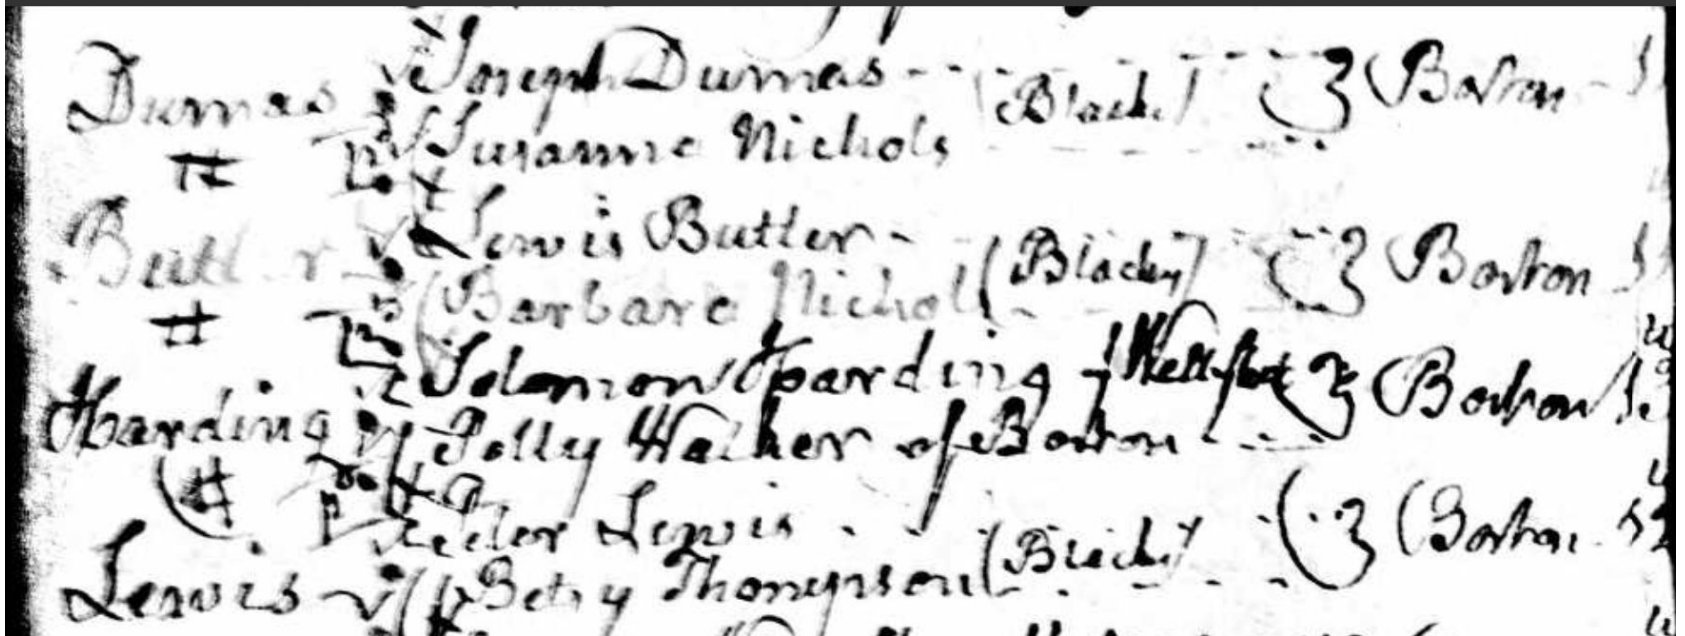 Dumas Joseph Dumas (Black) Boston
Susanna Nichols
Butler Lewis Butler (Blacks) Boston
Barbara Nichols
Harding Solomon Harding of Wellfleet Boston
Polly Walker of Boston
Lewis Peter Lewis (Blacks) Boston
Betsy Thompson